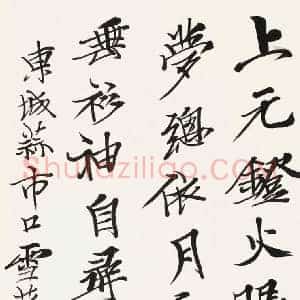 上元鐙火
夢總依月
垂衫神自尋
東城蒜市口雪
Shufaziliao.com